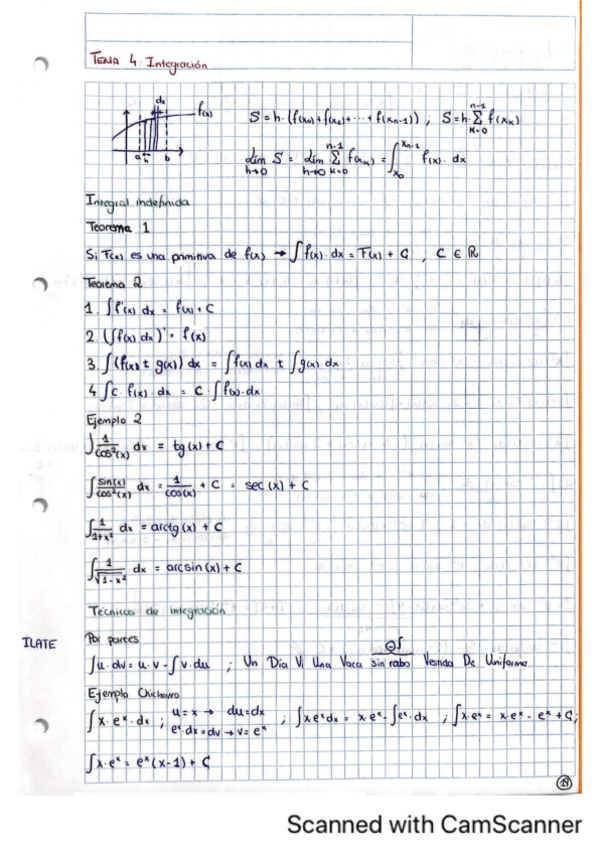 TEMA 4: Integración
dx
f(x)
a h b
S = h·(f(x₀)+f(x₁)+...+f(xₙ₋₁)) ; S = h·∑ₖ₌₀ⁿ⁻¹ f(xₖ)
lim h→0 S = lim h→0 ∑ₖ₌₀ⁿ⁻¹ f(xₖ) = ∫ₓ₀ˣⁿ⁻¹ f(x)·dx
Integral indefinida
Teorema 1
Si F(x) es una primitiva de f(x) → ∫f(x)·dx = F(x) + C , C ∈ ℝ
Teorema 2
1. ∫f'(x) dx = f(x) + C
2. (∫f(x) dx)' = f(x)
3. ∫(f(x) ± g(x)) dx = ∫f(x) dx ± ∫g(x) dx
4. ∫C·f(x)·dx = C·∫f(x)·dx
Ejemplo 2
∫ 1/cos²(x) dx = tg(x) + C
∫ sin(x)/cos²(x) dx = 1/cos(x) + C = sec(x) + C
∫ 1/(1+x²) dx = arctg(x) + C
∫ 1/√(1-x²) dx = arcsin(x) + C
Técnicas de integración
ILATE Por partes
∫u·dv = u·v - ∫v·du ; Un Día Vi Una Vaca sin rabo Vestida De Uniforme
Ejemplo Chicharro
∫x·eˣ·dx ; u = x → du = dx ; eˣ·dx = dv → v = eˣ ; ∫x·eˣdx = x·eˣ - ∫eˣ·dx ; ∫x·eˣ = x·eˣ - eˣ + C;
∫x·eˣ = eˣ(x-1) + C
14
Scanned with CamScanner